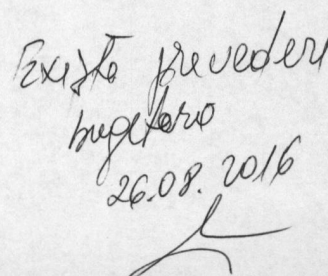 Există prevederi
bugetare
26.08.2016